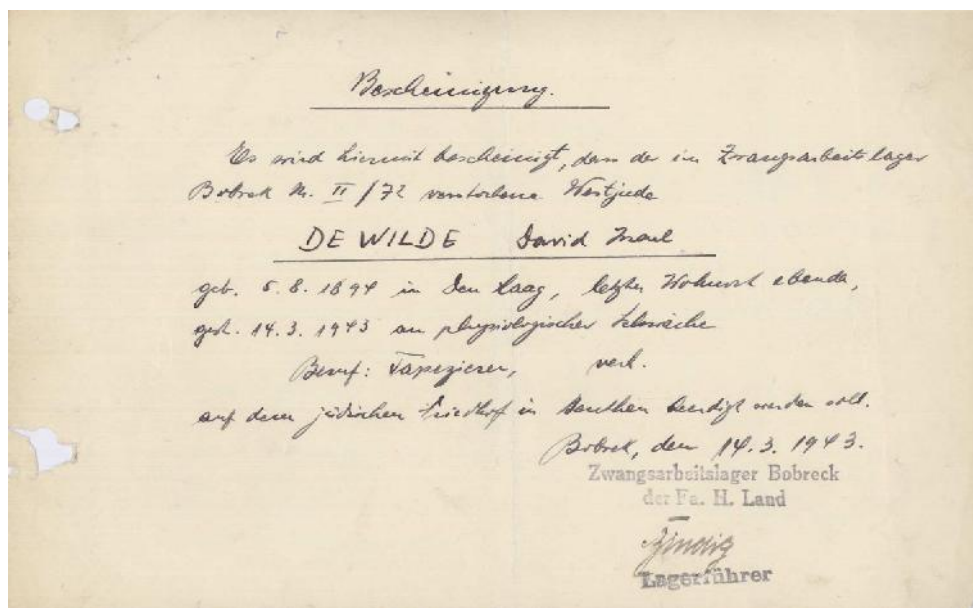 Bescheinigung.
Es wird hiermit bescheinigt, dass der im Zwangsarbeitslager
Bobrek Nr. II/72 verstorbene Westjude
DE WILDE David Israel
geb. 5.8.1894 in Den Haag, letzter Wohnort ebenda,
gest. 14.3.1943 an physiologischer Schwäche
Beruf: Tapezierer, verh.
auf dem jüdischen Friedhof in Beuthen beerdigt werden soll.
Bobrek, den 14.3.1943.
Zwangsarbeitslager Bobreck
der Fa. H. Land
Lagerführer